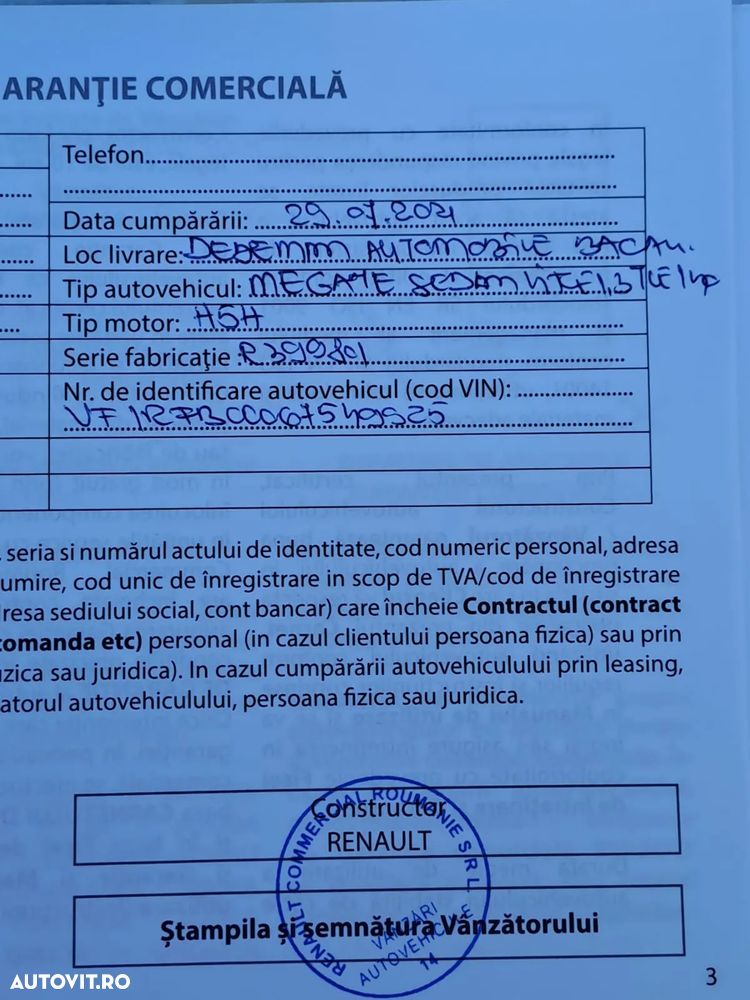 ARANŢIE COMERCIALĂ
Telefon
Data cumpărării: 29.07.2021
Loc livrare: DEDEMAN AUTOMOBILE BACAU.
Tip autovehicul: MEGANE SEDAN 1,3 TCE
Tip motor: H5H
Serie fabricaţie: R399801
Nr. de identificare autovehicul (cod VIN):
seria si numărul actului de identitate, cod numeric personal, adresa
umire, cod unic de înregistrare in scop de TVA/cod de înregistrare
dresa sediului social, cont bancar) care încheie Contractul (contract
comanda etc) personal (in cazul clientului persoana fizica) sau prin
izica sau juridica). In cazul cumpărării autovehiculului prin leasing,
atorul autovehiculului, persoana fizica sau juridica.
Constructor
RENAULT
RENAULT COMMERCIAL ROUMANIE SRL
VÂNZĂRI
AUTOVEHICULE
14
Ştampila și semnătura Vânzătorului
3
AUTOVIT.RO